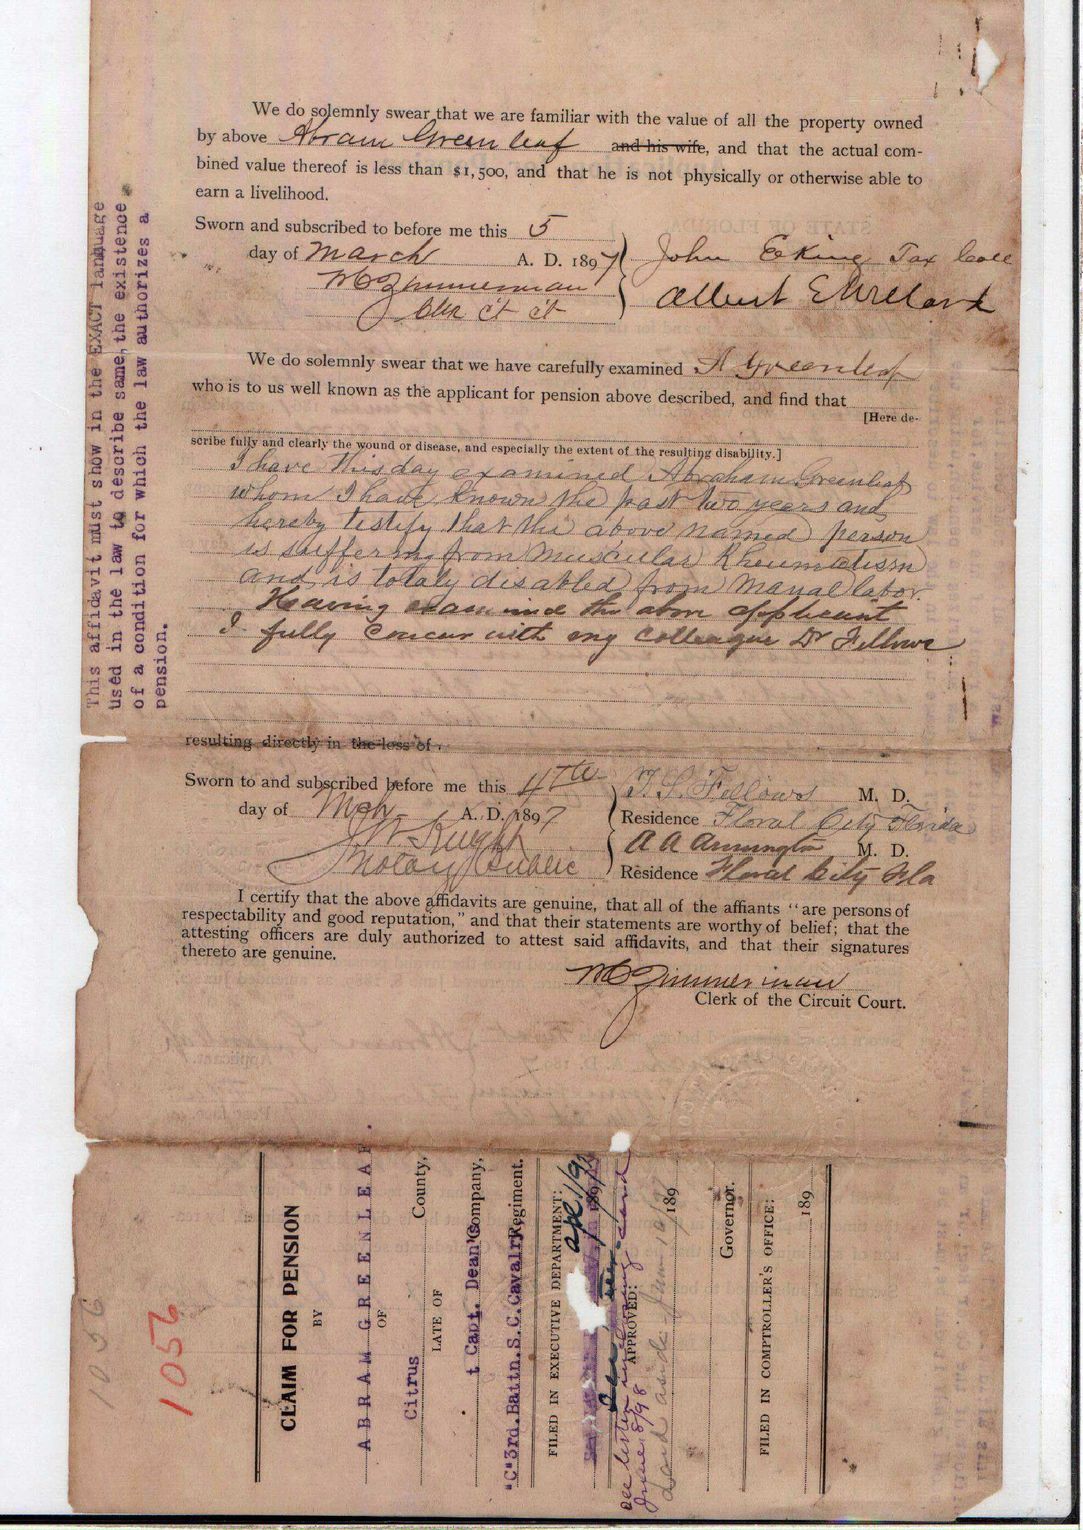 We do solemnly swear that we are familiar with the value of all the property owned
by above Abram Greenleaf and his wife, and that the actual com-
bined value thereof is less than $1,500, and that he is not physically or otherwise able to
earn a livelihood.
Sworn and subscribed to before me this 5
day of March A. D. 1897
John E King Tax Coll
M C Zimmerman
Albert E Willard
Clk Ct Ct
We do solemnly swear that we have carefully examined A Greenleaf
who is to us well known as the applicant for pension above described, and find that
[Here de-
scribe fully and clearly the wound or disease, and especially the extent of the resulting disability.]
I have this day examined Abraham Greenleaf
whom I have known the past two years and
hereby testify that the above named person
is suffering from Muscular Rheumatism
and is totaly disabled from manual labor.
Having examined the above applicant
I fully concur with my colleague Dr Fellows
resulting directly in the loss of
Sworn to and subscribed before me this 4th
day of Mch A. D. 1897
J W Knight
Notary Public
Fellows M. D.
Residence Floral City Florida
A A M. D.
Residence Floral City Fla
I certify that the above affidavits are genuine, that all of the affiants "are persons of
respectability and good reputation," and that their statements are worthy of belief; that the
attesting officers are duly authorized to attest said affidavits, and that their signatures
thereto are genuine.
M C Zimmerman
Clerk of the Circuit Court.
This affidavit must show in the EXACT language
used in the law to describe same, the existence
of a condition for which the law authorizes a
pension.
1056
1056
CLAIM FOR PENSION
BY
ABRAM GREENLEAF.
OF
Citrus County,
LATE OF
Capt. Dean's Company,
"C" 3rd. Battn. S. C. Cavalry, Regiment.
FILED IN EXECUTIVE DEPARTMENT:
Apl 1/97
See letter
June 8/98
APPROVED:
Laid aside June 10/97
189
Governor.
FILED IN COMPTROLLER'S OFFICE:
189